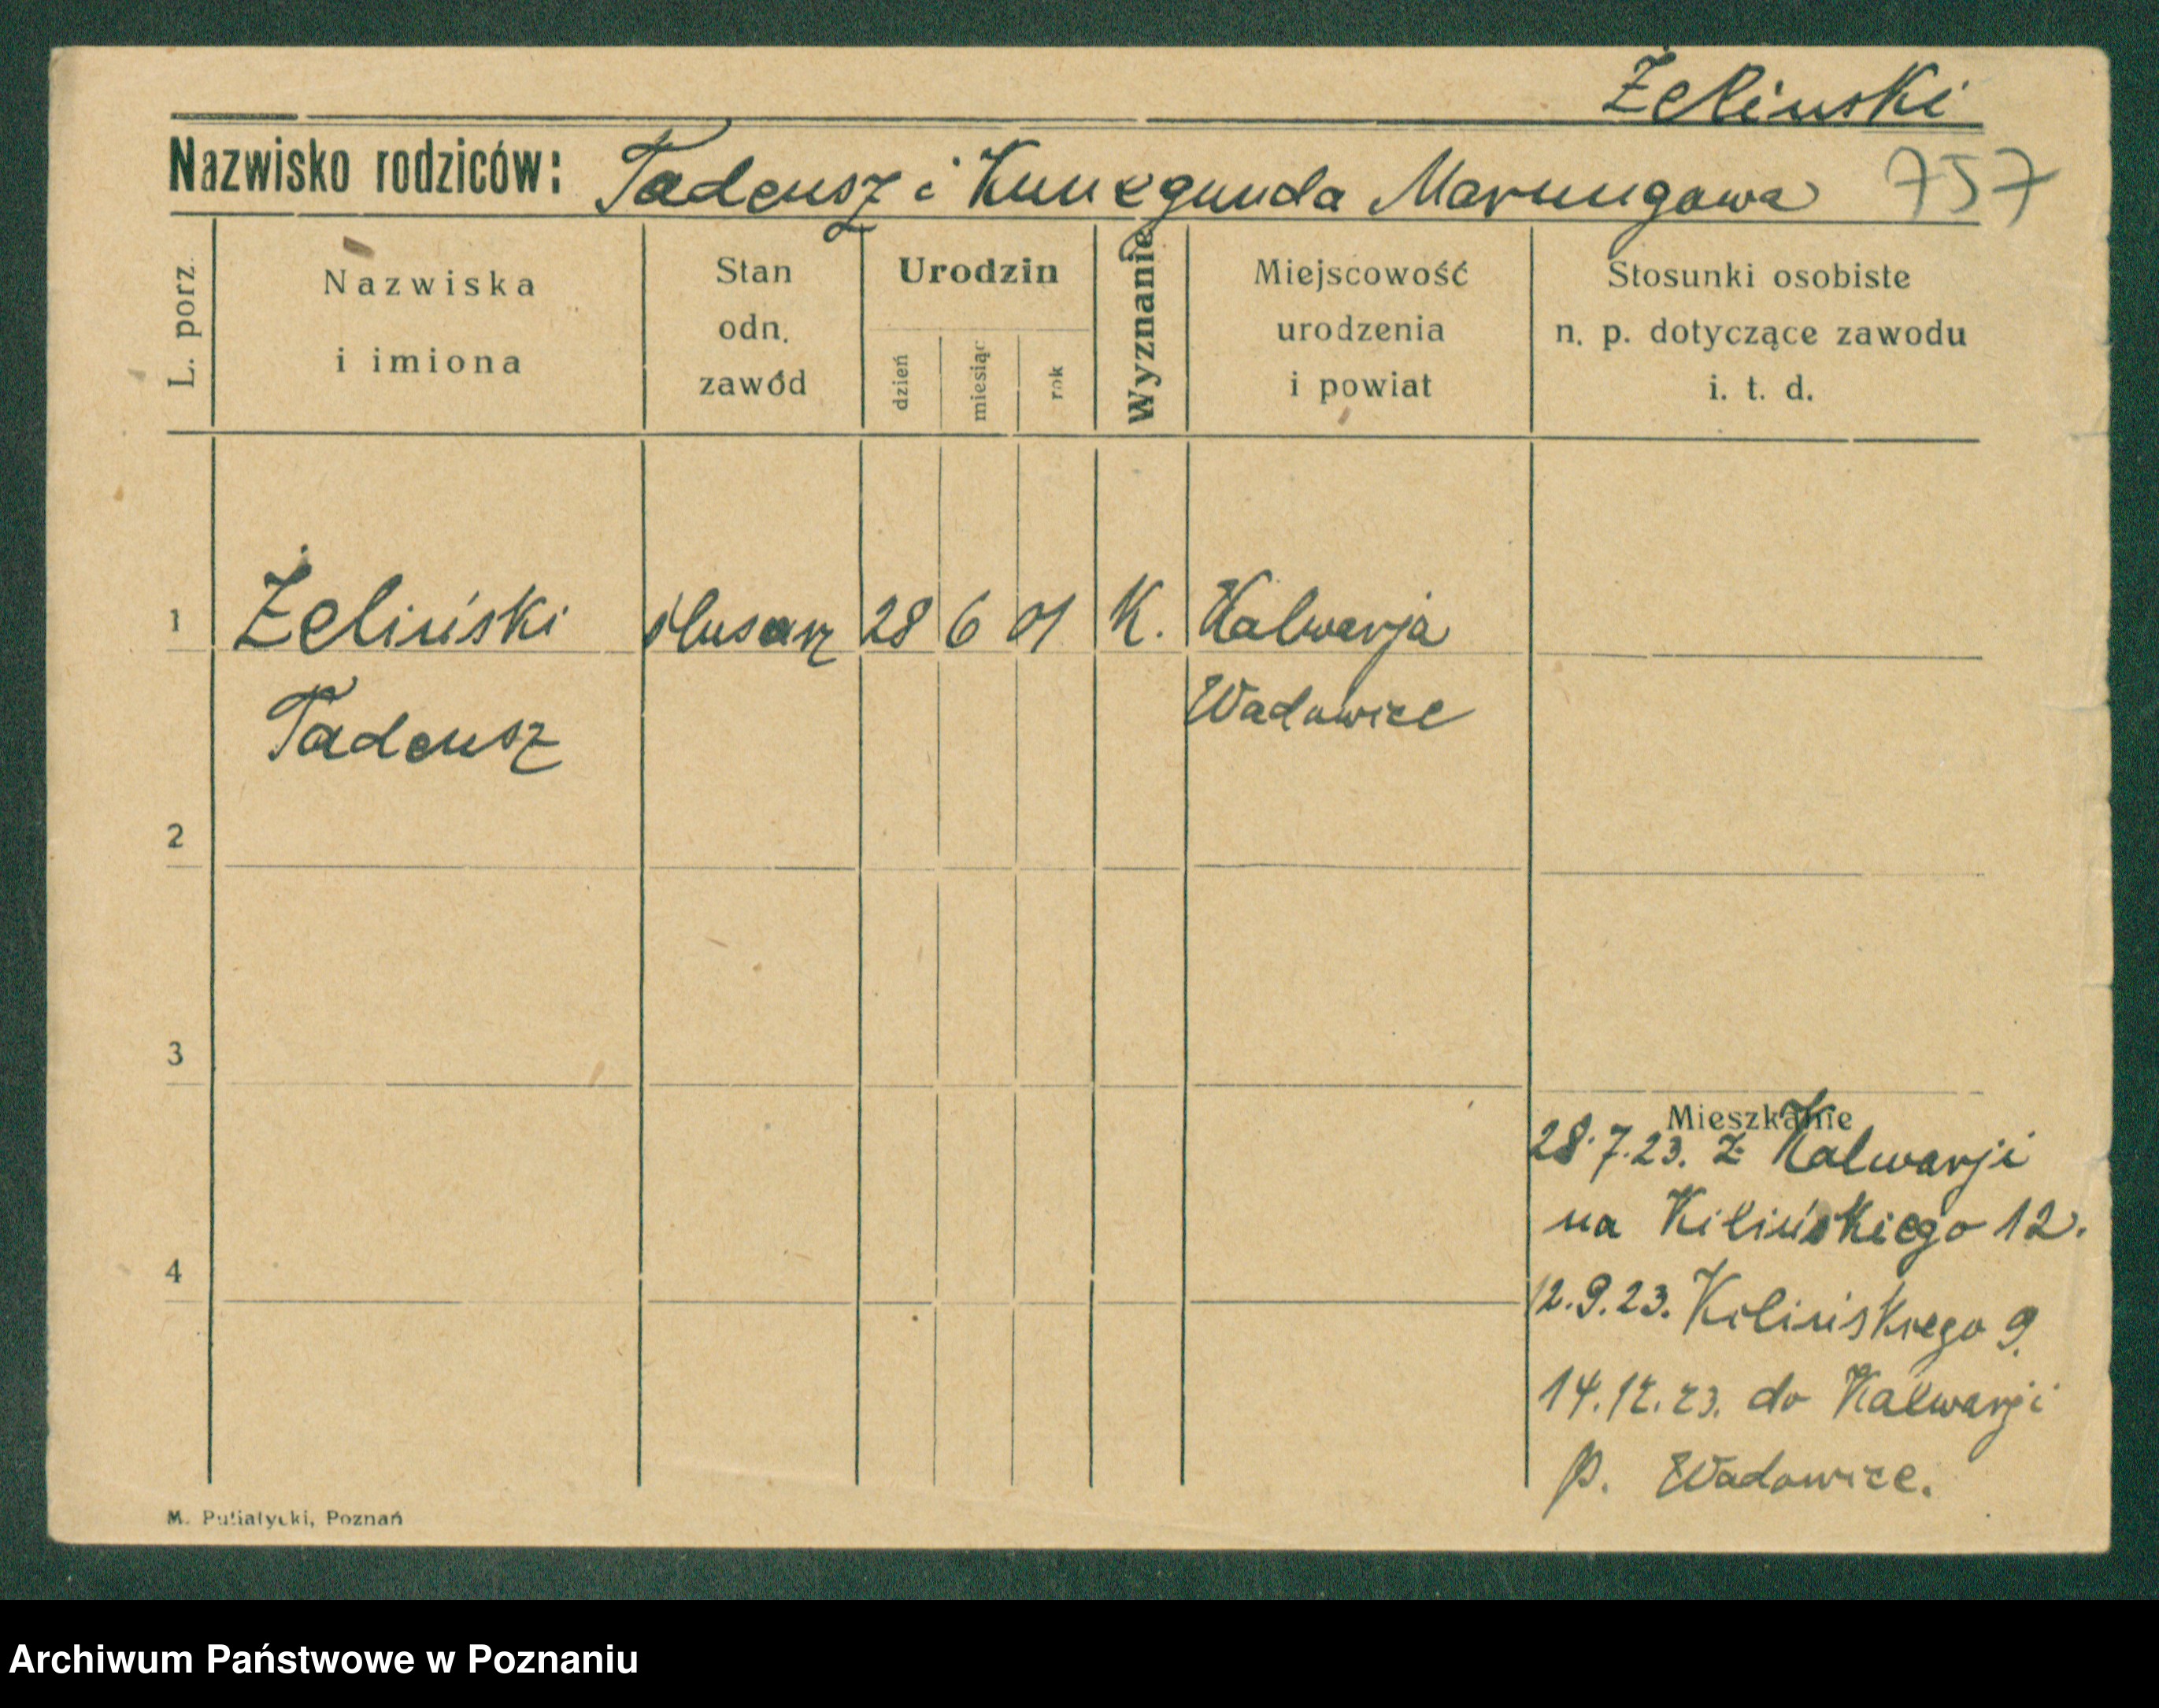 Żelinski
Nazwisko rodziców: Tadeusz i Kunegunda Marungowa 757
L. porz.
Nazwiska
i imiona
Stan
odn.
zawód
Urodzin
dzień
miesiąc
rok
Wyznanie
Miejscowość
urodzenia
i powiat
Stosunki osobiste
n. p. dotyczące zawodu
i. t. d.
1 Żeliński ślusarz 28 6 01 K. Kalwarja
Tadeusz Wadowice
2
3
Mieszkanie
28.7.23. z Kalwarji
na Kilińskiego 12.
4
12.9.23. Kilińskiego 9.
14.12.23. do Kalwarji
p. Wadowice.
M. Putiatycki, Poznań
Archiwum Państwowe w Poznaniu